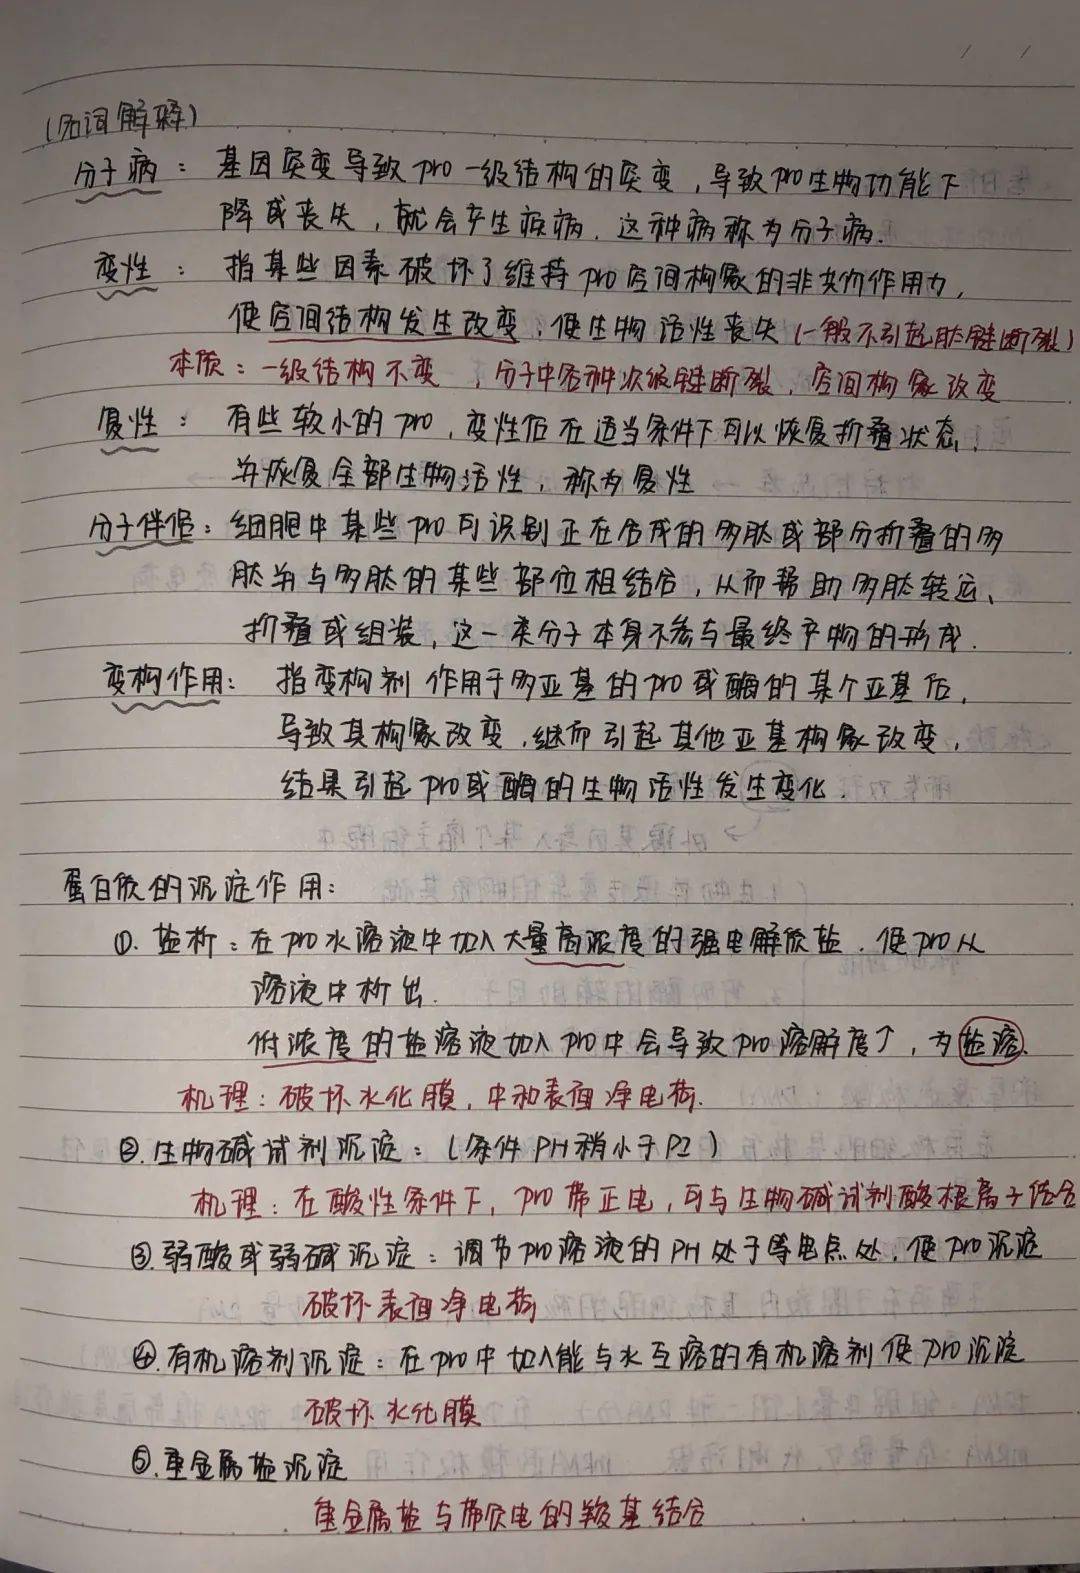 (名词解释)
分子病：基因突变导致pro一级结构的突变，导致pro生物功能下
降或丧失，就会产生疾病．这种病称为分子病．
变性：指某些因素破坏了维持pro空间构象的非共价作用力，
使空间结构发生改变，使生物活性丧失(一般不引起肽键断裂)
本质：一级结构不变，分子中各种次级键断裂，空间构象改变
复性：有些较小的pro，变性后在适当条件下可以恢复折叠状态，
并恢复全部生物活性，称为复性
分子伴侣：细胞中某些pro可识别正在合成的多肽或部分折叠的多
肽并与多肽的某些部位相结合，从而帮助多肽转运、
折叠或组装，这一类分子本身不参与最终产物的形成．
变构作用：指变构剂作用于多亚基的pro或酶的某个亚基后，
导致其构象改变，继而引起其他亚基构象改变，
结果引起pro或酶的生物活性发生变化．
蛋白质的沉淀作用：
①．盐析：在pro水溶液中加入大量高浓度的强电解质盐．使pro从
溶液中析出．
低浓度的盐溶液加入pro中会导致pro溶解度↑，为盐溶．
机理：破坏水化膜，中和表面净电荷．
②．生物碱试剂沉淀：(条件PH稍小于PI)
机理：在酸性条件下，pro带正电，可与生物碱试剂酸根离子结合
③．弱酸或弱碱沉淀：调节pro溶液的PH处于等电点处，使pro沉淀
破坏表面净电荷
④．有机溶剂沉淀：在pro中加入能与水互溶的有机溶剂使pro沉淀
破坏水化膜
⑤．重金属盐沉淀
重金属盐与带负电的羧基结合